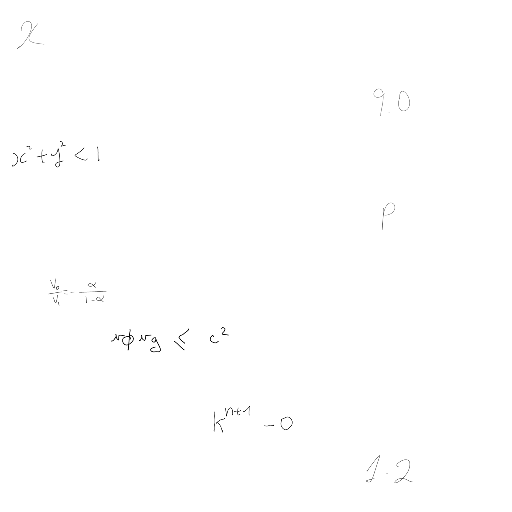 x
9.0
x² + y² < 1
p
V₀/V₁ = α/(1-α)
vϕ vg ≤ c²
k^{n+1} = 0
1.2